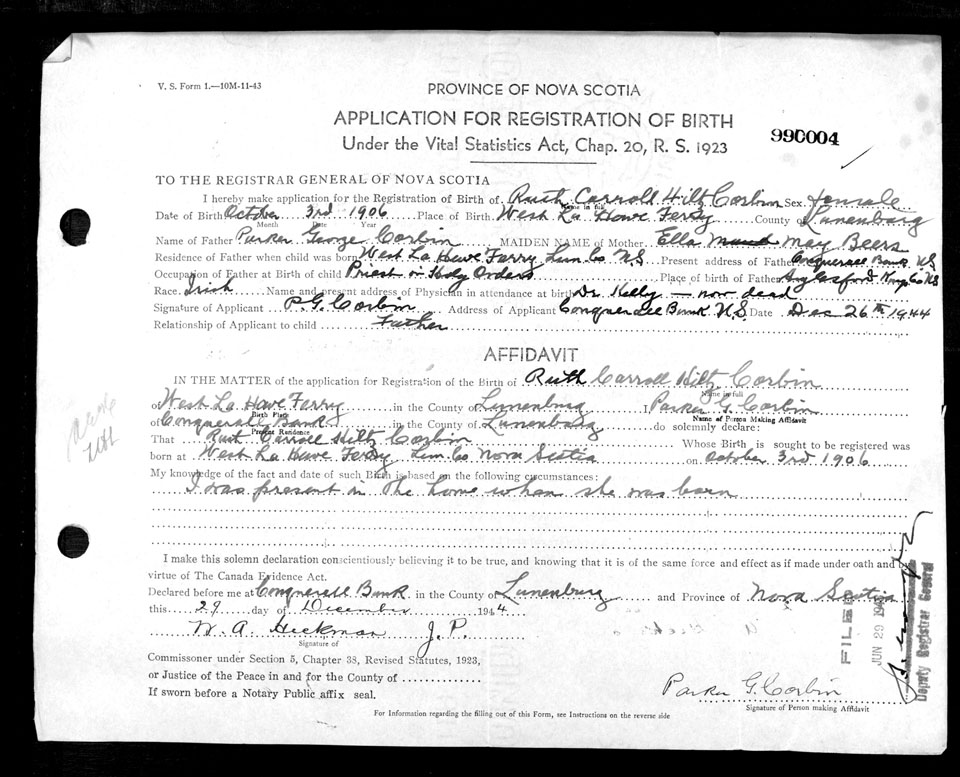 V. S. Form 1.—10M-11-43
PROVINCE OF NOVA SCOTIA
APPLICATION FOR REGISTRATION OF BIRTH
Under the Vital Statistics Act, Chap. 20, R. S. 1923
990004
TO THE REGISTRAR GENERAL OF NOVA SCOTIA
I hereby make application for the Registration of Birth of Ruth Carroll Hiltz Corbin Sex Female
Name in full
Date of Birth October 3rd 1906 Place of Birth West La Have Ferry County of Lunenburg
Month Date Year
Name of Father Parker George Corbin MAIDEN NAME of Mother Ella Maud May Beers
Residence of Father when child was born West La Have Ferry Lun. Co N.S Present address of Father Conquerall Bank N.S
Occupation of Father at Birth of child Priest in Holy Orders Place of birth of Father Co N.S
Race Irish Name and present address of Physician in attendance at birth Dr Kelly — now dead
Signature of Applicant P. G. Corbin Address of Applicant Conquerall Bank N.S. Date Dec 26th 1944
Relationship of Applicant to child Father
AFFIDAVIT
IN THE MATTER of the application for Registration of the Birth of Ruth Carroll Hiltz Corbin
Name in full
of West La Have Ferry in the County of Lunenburg Parker G. Corbin
Birth Place Name of Person Making Affidavit
of Conquerall Bank in the County of Lunenburg do solemnly declare:
Present Residence
That Rut Carroll Hiltz Corbin Whose Birth is sought to be registered was
born at West La Have Ferry Lun. Co Nova Scotia on October 3rd 1906
My knowledge of the fact and date of such Birth is based on the following circumstances:
I was present in the home when she was born
I make this solemn declaration conscientiously believing it to be true, and knowing that it is of the same force and effect as if made under oath and by
virtue of The Canada Evidence Act.
Declared before me at Conquerall Bank in the County of Lunenburg and Province of Nova Scotia
this 29 day of December 1944
W. A. Heckman J. P.
Signature of
Commissoner under Section 5, Chapter 38, Revised Statutes, 1923,
or Justice of the Peace in and for the County of
If sworn before a Notary Public affix seal.
Parker G. Corbin
Signature of Person making Affidavit
For Information regarding the filling out of this Form, see Instructions on the reverse side
FILED
JUN 29
Deputy Registrar General